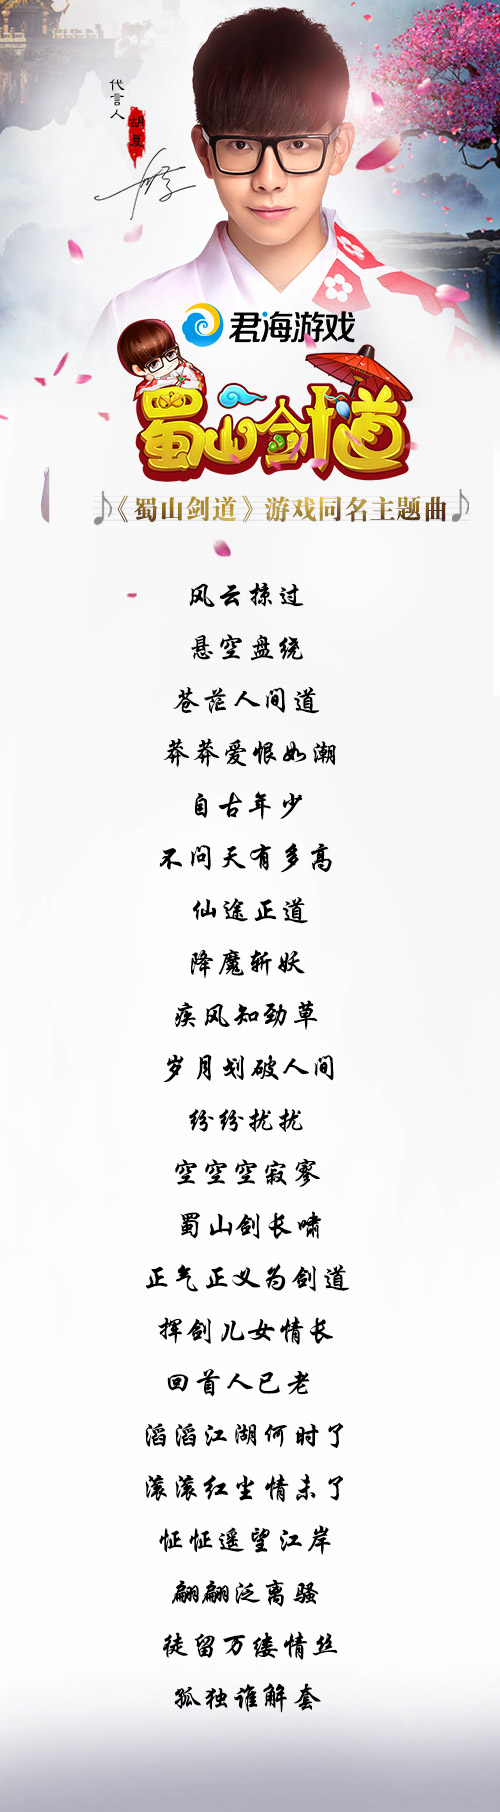 代言人
胡夏
君海游戏
蜀山剑道
《蜀山剑道》游戏同名主题曲
风云掠过
悬空盘绕
苍茫人间道
莽莽爱恨如潮
自古年少
不问天有多高
仙途正道
降魔斩妖
疾风知劲草
岁月划破人间
纷纷扰扰
空空空寂寥
蜀山剑长啸
正气正义为剑道
挥剑儿女情长
回首人已老
滔滔江湖何时了
滚滚红尘情未了
怔怔遥望江岸
翩翩泛离骚
徒留万缕情丝
孤独谁解套